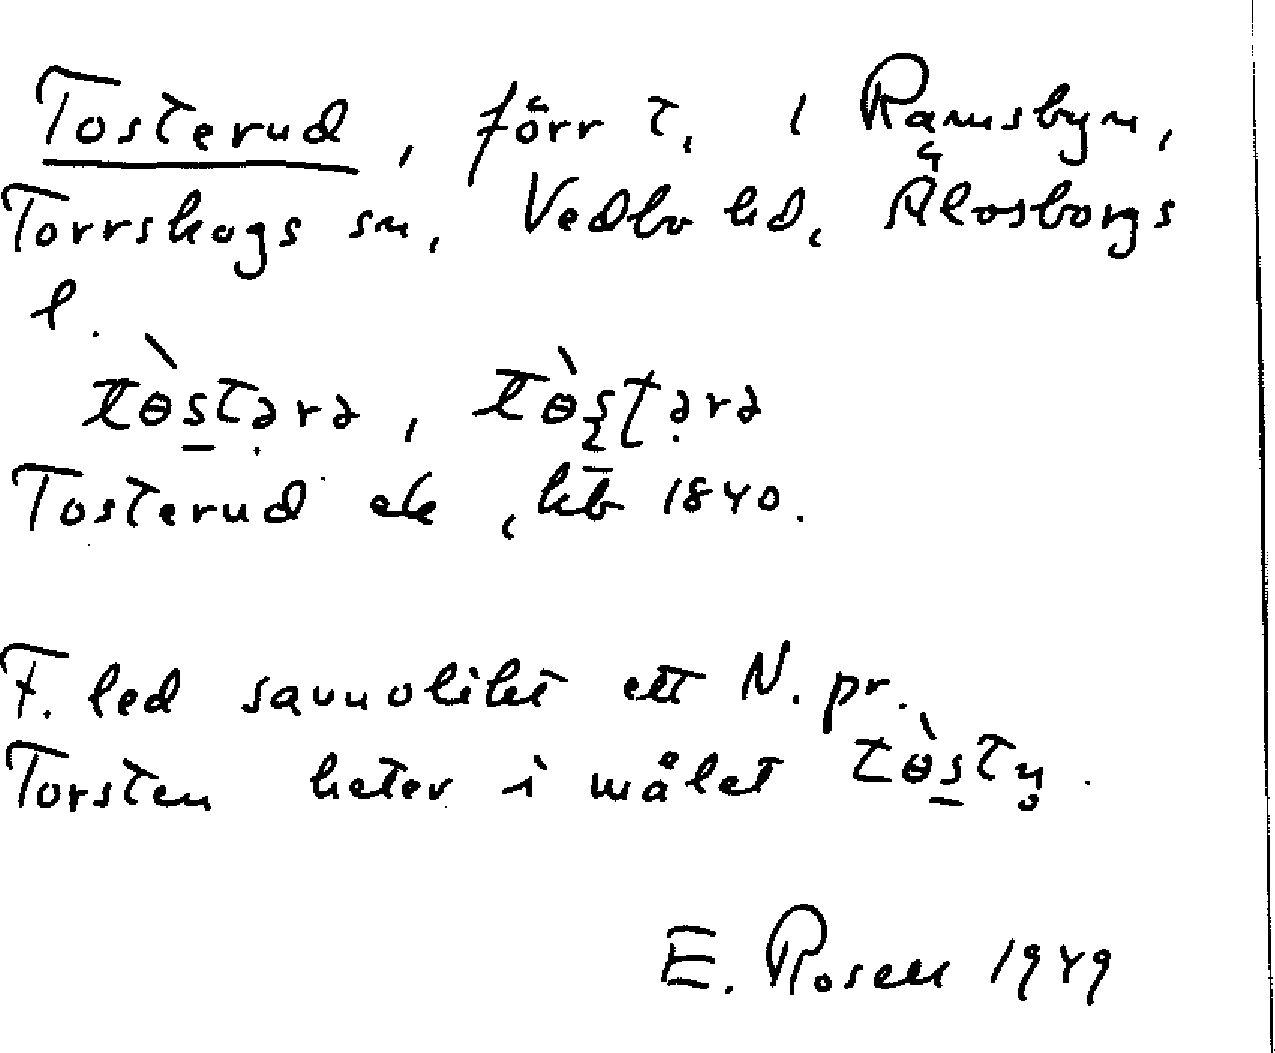 Tosterud, förr t. i Ramsbyn,
Torrskogs sn, Vedbo hd, Älvsborgs
l.
Tosterud ele, hfb 1840.
F. led sannolikt ett N. pr.
Torsten heter i målet
E. Rosell 1949